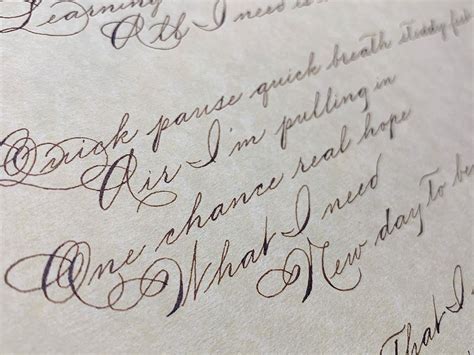 Learning
All I need is
Quick pause quick breath steady
Air I'm pulling in
One chance real hope
What I need
New day to be
That I